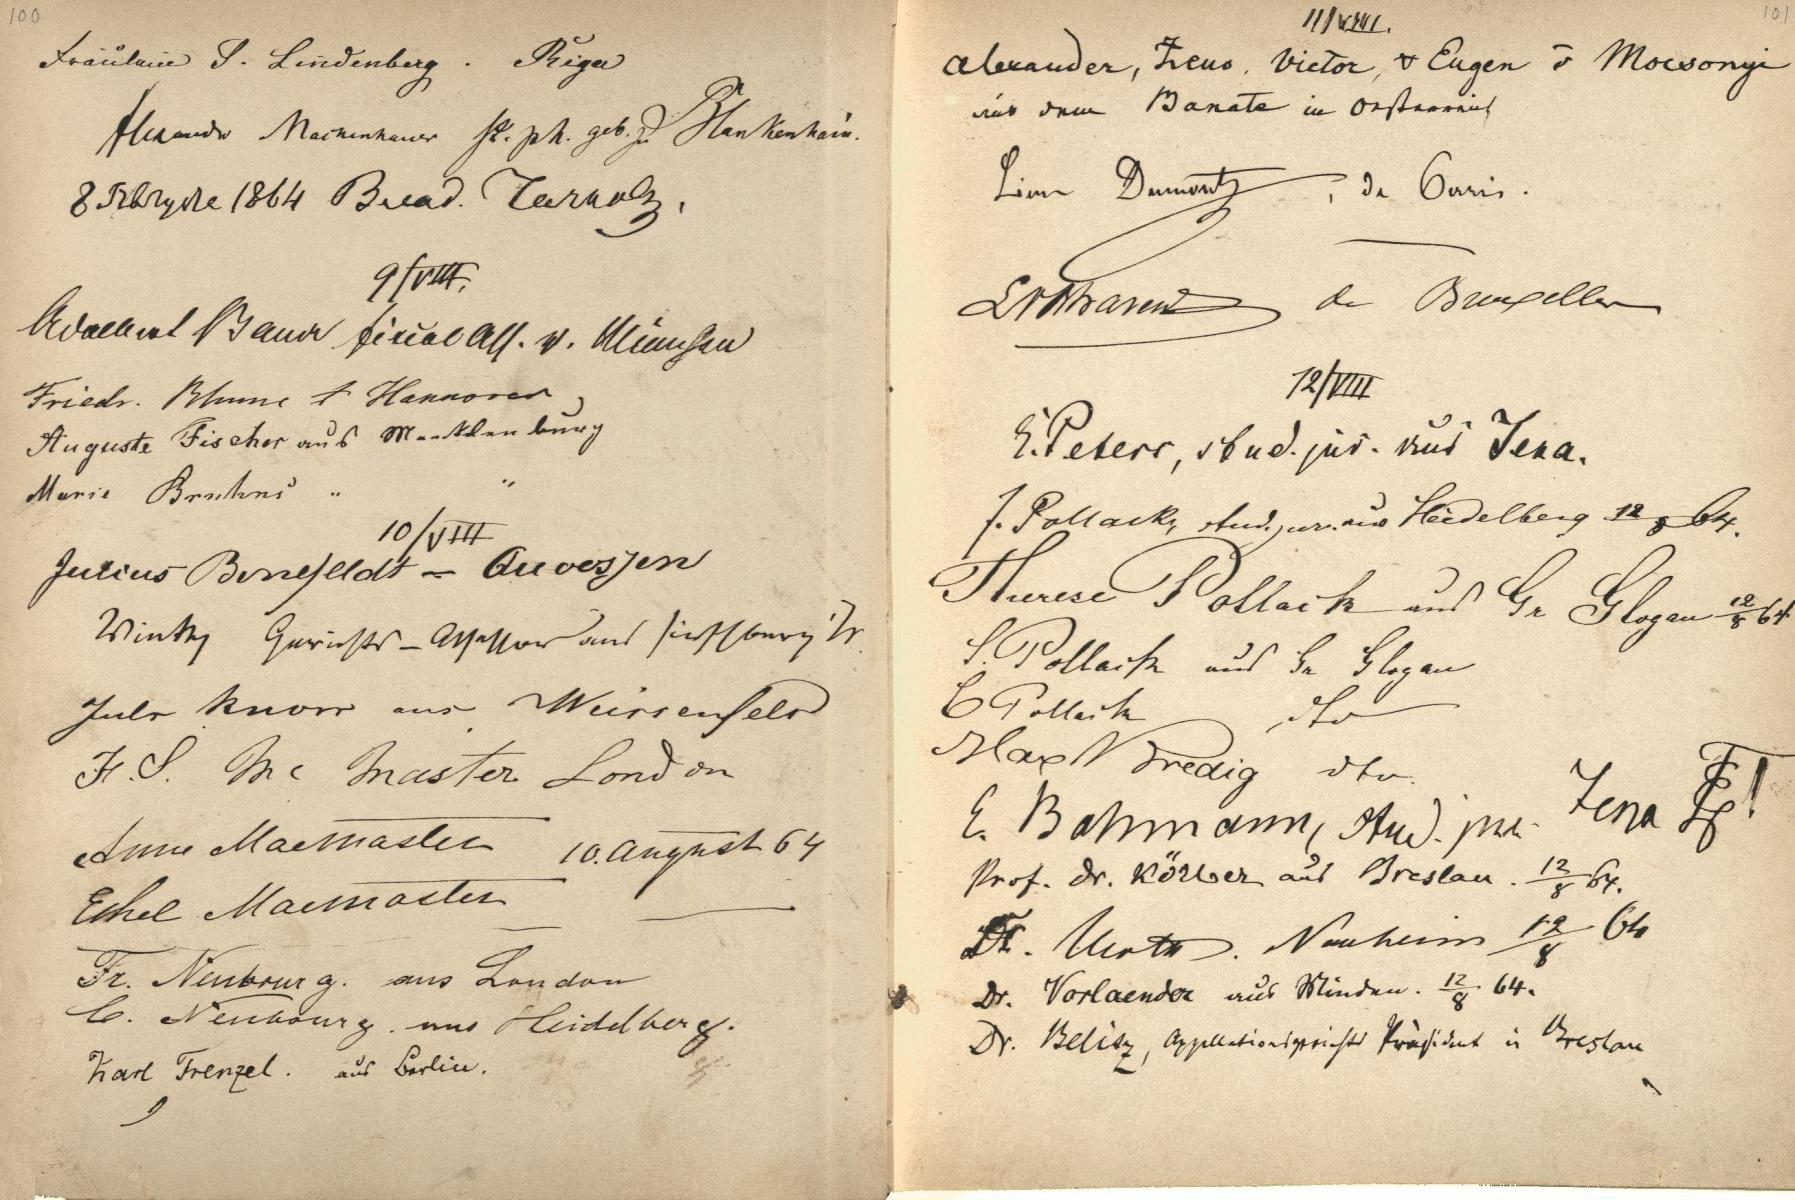 100
Fräulein S. Lindenberg. Riga
Alexander st. ph. geb. zu Blankenhain.
8 1864
9/VIII.
Adalbert Bauer
Friedr. Blume Hannover
Auguste Fischer aus Mecklenburg
Marie Bruhns " "
10/VIII
Julius
Gerichts-Assessor aus
Julr Knorr aus Weissenfels
F. S. Mc Master London
Anne Macmaster 10. August 64
Ethel Macmaster —
Fr. Neubourg. aus London
C. Neubourg. aus Heidelberg.
Karl Frenzel. aus Berlin.
101
11/VIII.
Alexander, Zeno, Victor, & Eugen v Mocsonyi
aus dem Banate in Oesterreich
Dumont, de Paris.
de Bruxelles
12/VIII
E. Peters, stud. jur. aus Jena.
J. Pollack, stud. jur. aus Heidelberg 12/8 64.
Therese Pollack aus Gr Glogau 12/8 64
S. Pollack aus Gr Glogau
C Pollack dto
Max Bredig dto.
E. Bahmann, stud. jur. Jena
Prof. Dr. Körber aus Breslau. 12/8 64.
Dr. Nauheim 12/8 64
Dr. Vorlaender aus Minden. 12/8 64.
Dr. Belitz, Appellationsgerichts Präsident in Breslau